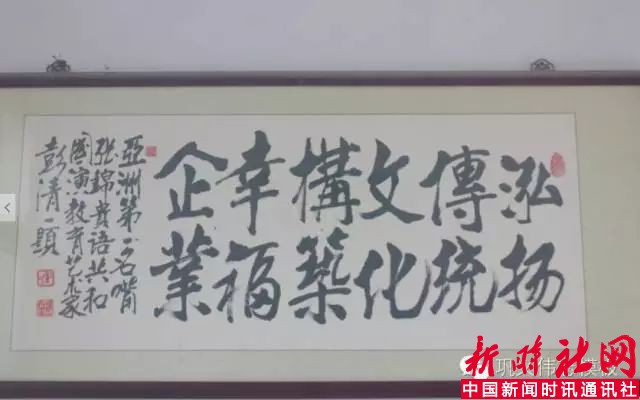 泓扬
傳統
文化
構築
幸福
企業
亞洲第一名嘴
張錦貴語共和
國演教育艺术家
彭清一題
新時社网
中国新闻时讯通讯社